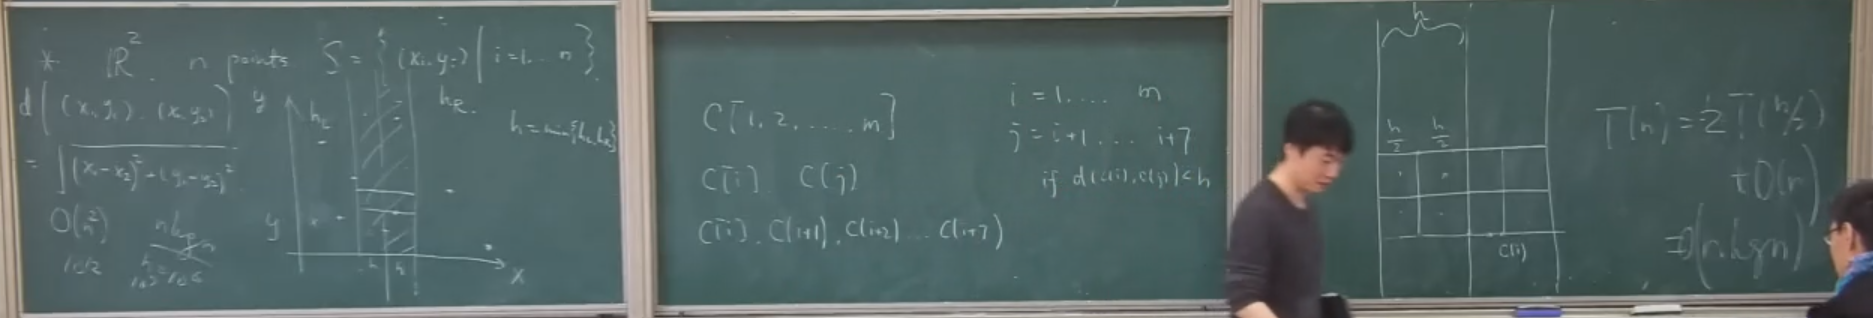 * ℝ². n points S = { (xᵢ, yᵢ) | i=1...n }.
d( (x₁, y₁), (x₂, y₂) )
= √(x₁-x₂)²+(y₁-y₂)²
O(n²)
y
h_L
h_R.
h = min{h_L, h_R}
y
h h
x
C[1, 2, ..... m]
C[i]. C(j)
C[i]. C(i+1), C(i+2) ... C(i+7)
i = 1, .... m
j = i+1, ... i+7
if d(C(i), C(j)) < h
h
h/2 h/2
C(i)
T(n) = 2T(n/2)
+O(n)
=O(n log n)